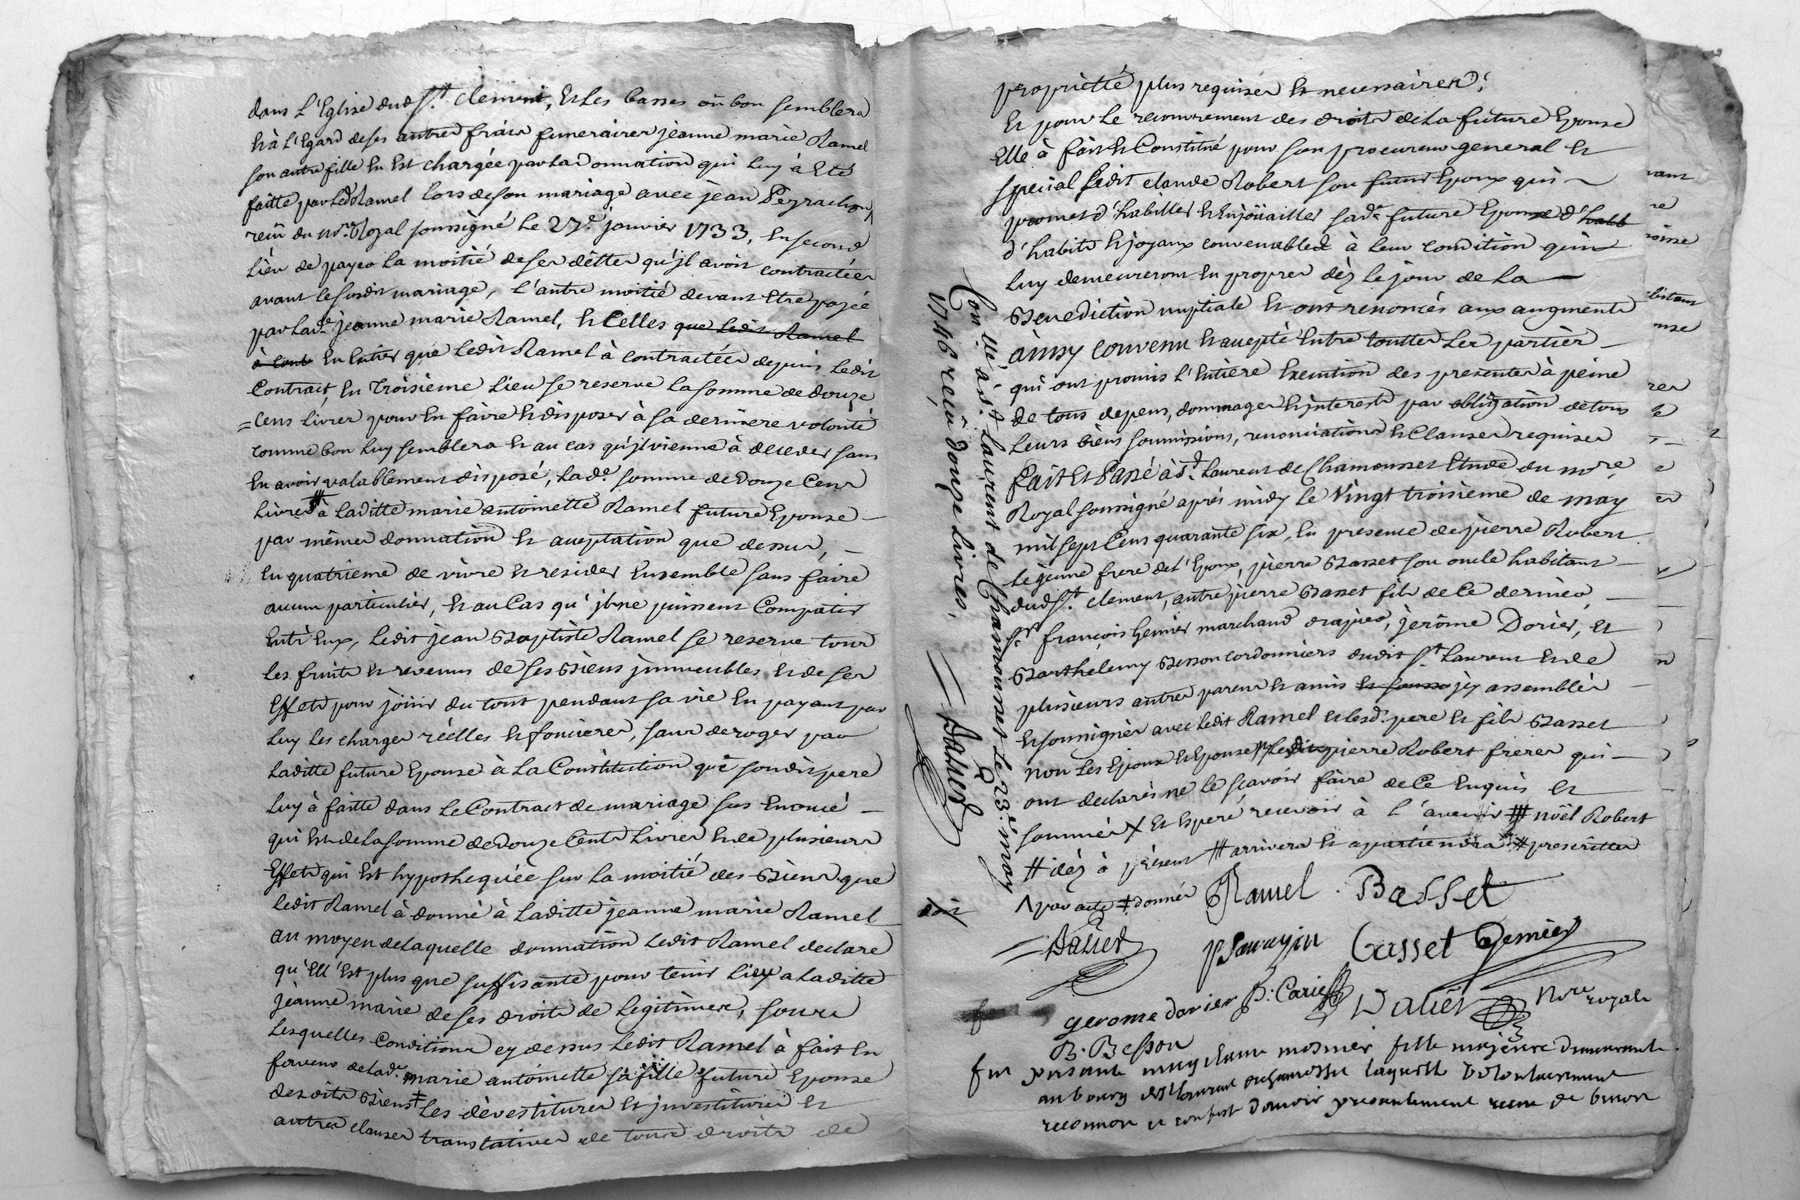 dans L'Eglise dud St. clement, Et Les basses où bon semblera
Et à L'Egard de ses autres frais funeraires jeanne marie Ramel
son autre fille En Est chargée par La Donnation qui Luy à Eté
faitte par Led Ramel Lors de son mariage avec jean Peyrachon
reçû du nore. Royal soussigné Le 27e. janvier 1733, En second
Lieu de payer La moitié de ses dettes qu'jl avoit contractées
avant Le susdit mariage, L'autre moitié devant Etre payée
par Lade. jeanne marie Ramel, Et Celles que Ledit Ramel
En Entier que Ledit Ramel à contractées depuis Ledit
Contrat, En Troisieme Lieu se reserve La somme de Douze
=Cens Livres pour En faire Et disposer à sa derniere volonté
comme bon Luy semblera Et au cas qu'jl vienne à deceder sans
En avoir valablement disposé, Lade. somme de Douze Cens
Livres # à Laditte marie antoinette Ramel future Epouse –
par mêmes donnation Et aceptation que dessus, –
En quatrieme de vivre Et resider Ensemble sans faire
aucun particulier, Et au Cas qu'jls ne puissent Compatir
Entr'Eux, Ledit jean Baptiste Ramel se reserve tous
Les fruits Et revenus de ses Biens jmmeubles Et de ses
Effets pour joüir du tout pendant sa vie En payant par
Luy Les charges réélles Et foncieres, sans deroger par
Laditte future Epouse à La Constitution que sondit pere
Luy à faitte dans Le Contract de mariage sus Enoncé –
qui Est de La somme de Douze Cents Livres Et de plusieurs
Effets qui Est hypothequée sur La moitié des Biens que
Ledit Ramel à donné à Laditte jeanne marie Ramel
au moyen de Laquelle donnation Ledit Ramel declare
qu'Ell'Est plus que suffisante pour tenir Lieu a Laditte
jeanne marie de ses droits de Legitimes, sous
Lesquelles Conditions cy dessus Ledit Ramel à fait En
faveur de Lade. marie antoinette sa fille future Epouse
desdits Biens # Les dévestitures Et jnvestitures Et
autres clauses translatives de tous droits de
propriété plus requises Et necessaires.
Et pour Le recouvrement des droits de La future Epouse
Elle à fait Et Constitué pour son procureur general Et
special Ledit claude Robert son futur Epoux qui –
promet d'habiller Et Enjoüailler sade. future Epouse d'habb
d'habits Et joyaux convenables à Leur condition qui
Luy demeureront En propres dèz Le jour de La –
Benediction nuptiale Et ont renoncés aux augments
ainsy convenu Et accepté Entre touttes Les parties –
qui ont promis L'Entière Execution des presentes à peine
de tous depens, dommages Et interets par obligation de tous
Leurs Biens soumissions, renonciations Et Clauses requises
Fait Et Passé à St. Laurent de Chamousset Etude du nore.
Royal soussigné après midy Le Vingt troisieme de may
mil sept Cens quarante six, En presence de pierre Robert
Le jeune frere de L'Epoux, pierre Basset son oncle habitant –
dud St. clement, autre pierre Basset fils de Ce dernier, –
sr. françois Genier marchand drapier, jerôme Dorier, Et
Barthelemy Besson cordonniers dudit St. Laurent Et de
plusieurs autres parens Et amis jcy assemblés –
Et soussignés avec Ledit Ramel Et Lesd. pere Et fils Basset
non Les Epoux Et Epouse pierre Robert freres qui –
ont declarés ne Le scavoir faire de Ce Enquis Et
sommés X Et Esperé recevoir à L'avenir # nöël Robert
# dèz à present # arrivera Et apartiendra # prescrittes
Λ par acte # donnée Ramel . Basset
Con lle à St. Laurent de Chamousset Le 23e. may
1746 reçû douze Livres.
P Saurajin Basset Genier
gerome dorier P: Carie Nore royale
B. Besson
fut presante